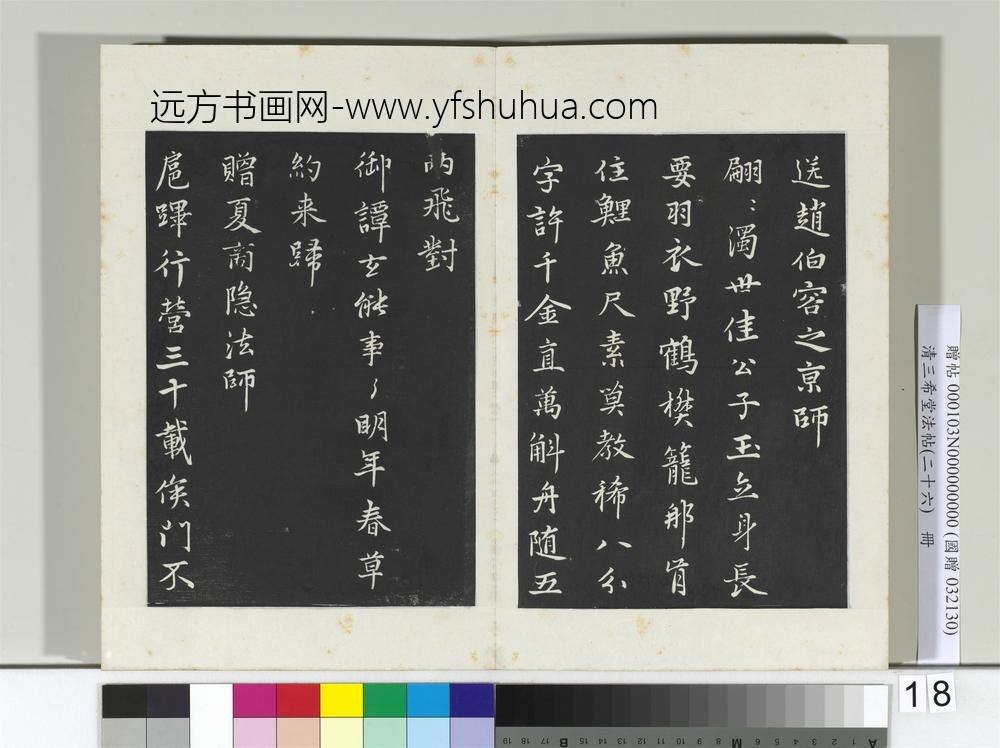 远方书画网-www.yfshuhua.com
送趙伯容之京師
翩〻濁世佳公子玉立身長
要羽衣野鶴樊籠那肯
住鯉魚尺素莫教稀八分
字許千金直萬斛舟随五
兩飛對
御譚玄能事了明年春草
約来歸
贈夏商隐法師
扈蹕行營三十載侯門不
贈帖 000103N000000000 (國贈 032130)
清三希堂法帖(二十六) 冊
18